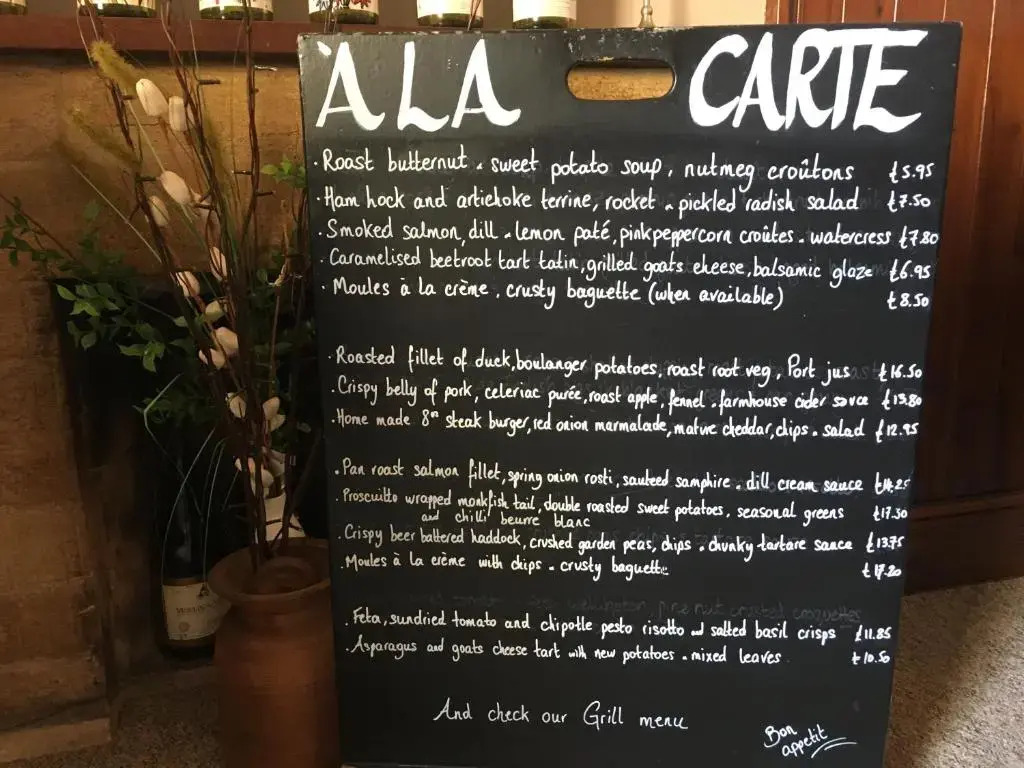 À LA CARTE
· Roast butternut & sweet potato soup, nutmeg croûtons £5.95
· Ham hock and artichoke terrine, rocket & pickled radish salad £7.50
· Smoked salmon, dill & lemon paté, pink peppercorn croûtes & watercress £7.80
· Caramelised beetroot tart tatin, grilled goats cheese, balsamic glaze £6.95
· Moules à la crème, crusty baguette (when available) £8.50
· Roasted fillet of duck, boulanger potatoes, roast root veg, Port jus £16.50
· Crispy belly of pork, celeriac purée, roast apple, fennel & farmhouse cider sauce £13.80
· Home made 8oz steak burger, red onion marmalade, mature cheddar, chips & salad £12.95
· Pan roast salmon fillet, spring onion rosti, sauteed samphire & dill cream sauce £14.25
· Proscuitto wrapped monkfish tail, double roasted sweet potatoes, seasonal greens £17.50
and chilli beurre blanc
· Crispy beer battered haddock, crushed garden peas, chips & chunky tartare sauce £13.75
· Moules à la crème with chips & crusty baguette £17.20
· Feta, sundried tomato and chipotle pesto risotto and salted basil crisps £11.85
· Asparagus and goats cheese tart with new potatoes & mixed leaves £10.50
And check our Grill menu
Bon
appetit